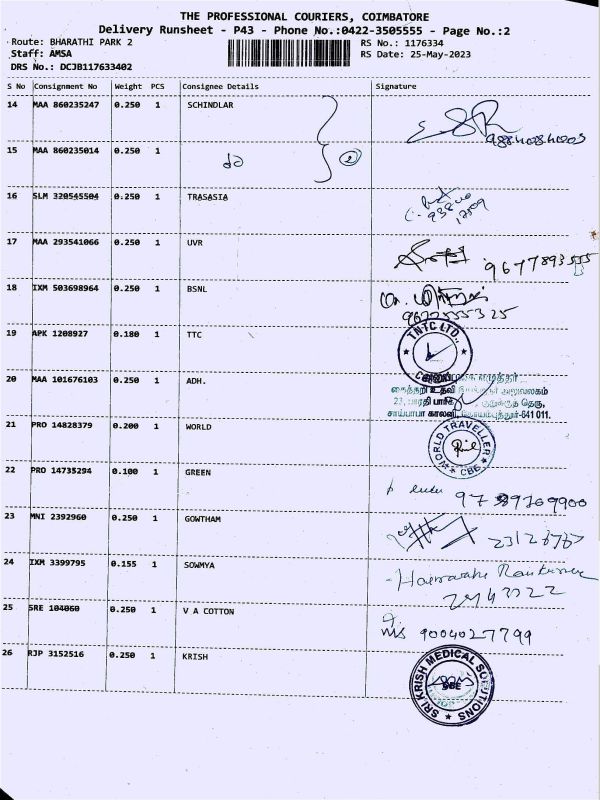 THE PROFESSIONAL COURIERS, COIMBATORE
Delivery Runsheet - P43 - Phone No.:0422-3505555 - Page No.:2
Route: BHARATHI PARK 2 RS No.: 1176334
Staff: AMSA RS Date: 25-May-2023
DRS No.: DCJB117633402
S No Consignment No Weight PCS Consignee Details Signature
14 MAA 860235247 0.250 1 SCHINDLAR
15 MAA 860235014 0.250 1 2
16 SLM 320545504 0.250 1 TRASASIA
17 MAA 293541066 0.250 1 UVR 9677893555
18 IXM 503698964 0.250 1 BSNL
9677555325
19 APK 1208927 0.180 1 TTC TNTC LTD.,
20 MAA 101676103 0.250 1 ADH.
கைத்தறி உதவி அலுவலகம்
23, பாரதி பார்க் தெரு,
சாய்பாபா காலனி, கோயம்புத்தூர்-641 011.
21 PRO 14828379 0.200 1 WORLD WORLD TRAVELLER CBE
22 PRO 14735294 0.100 1 GREEN
23 MNI 2392960 0.250 1 GOWTHAM
24 IXM 3399795 0.155 1 SOWMYA
2443022
25 SRE 104060 0.250 1 V A COTTON 9004027799
26 RJP 3152516 0.250 1 KRISH SRI KRISH MEDICAL SOLUTIONS CBE